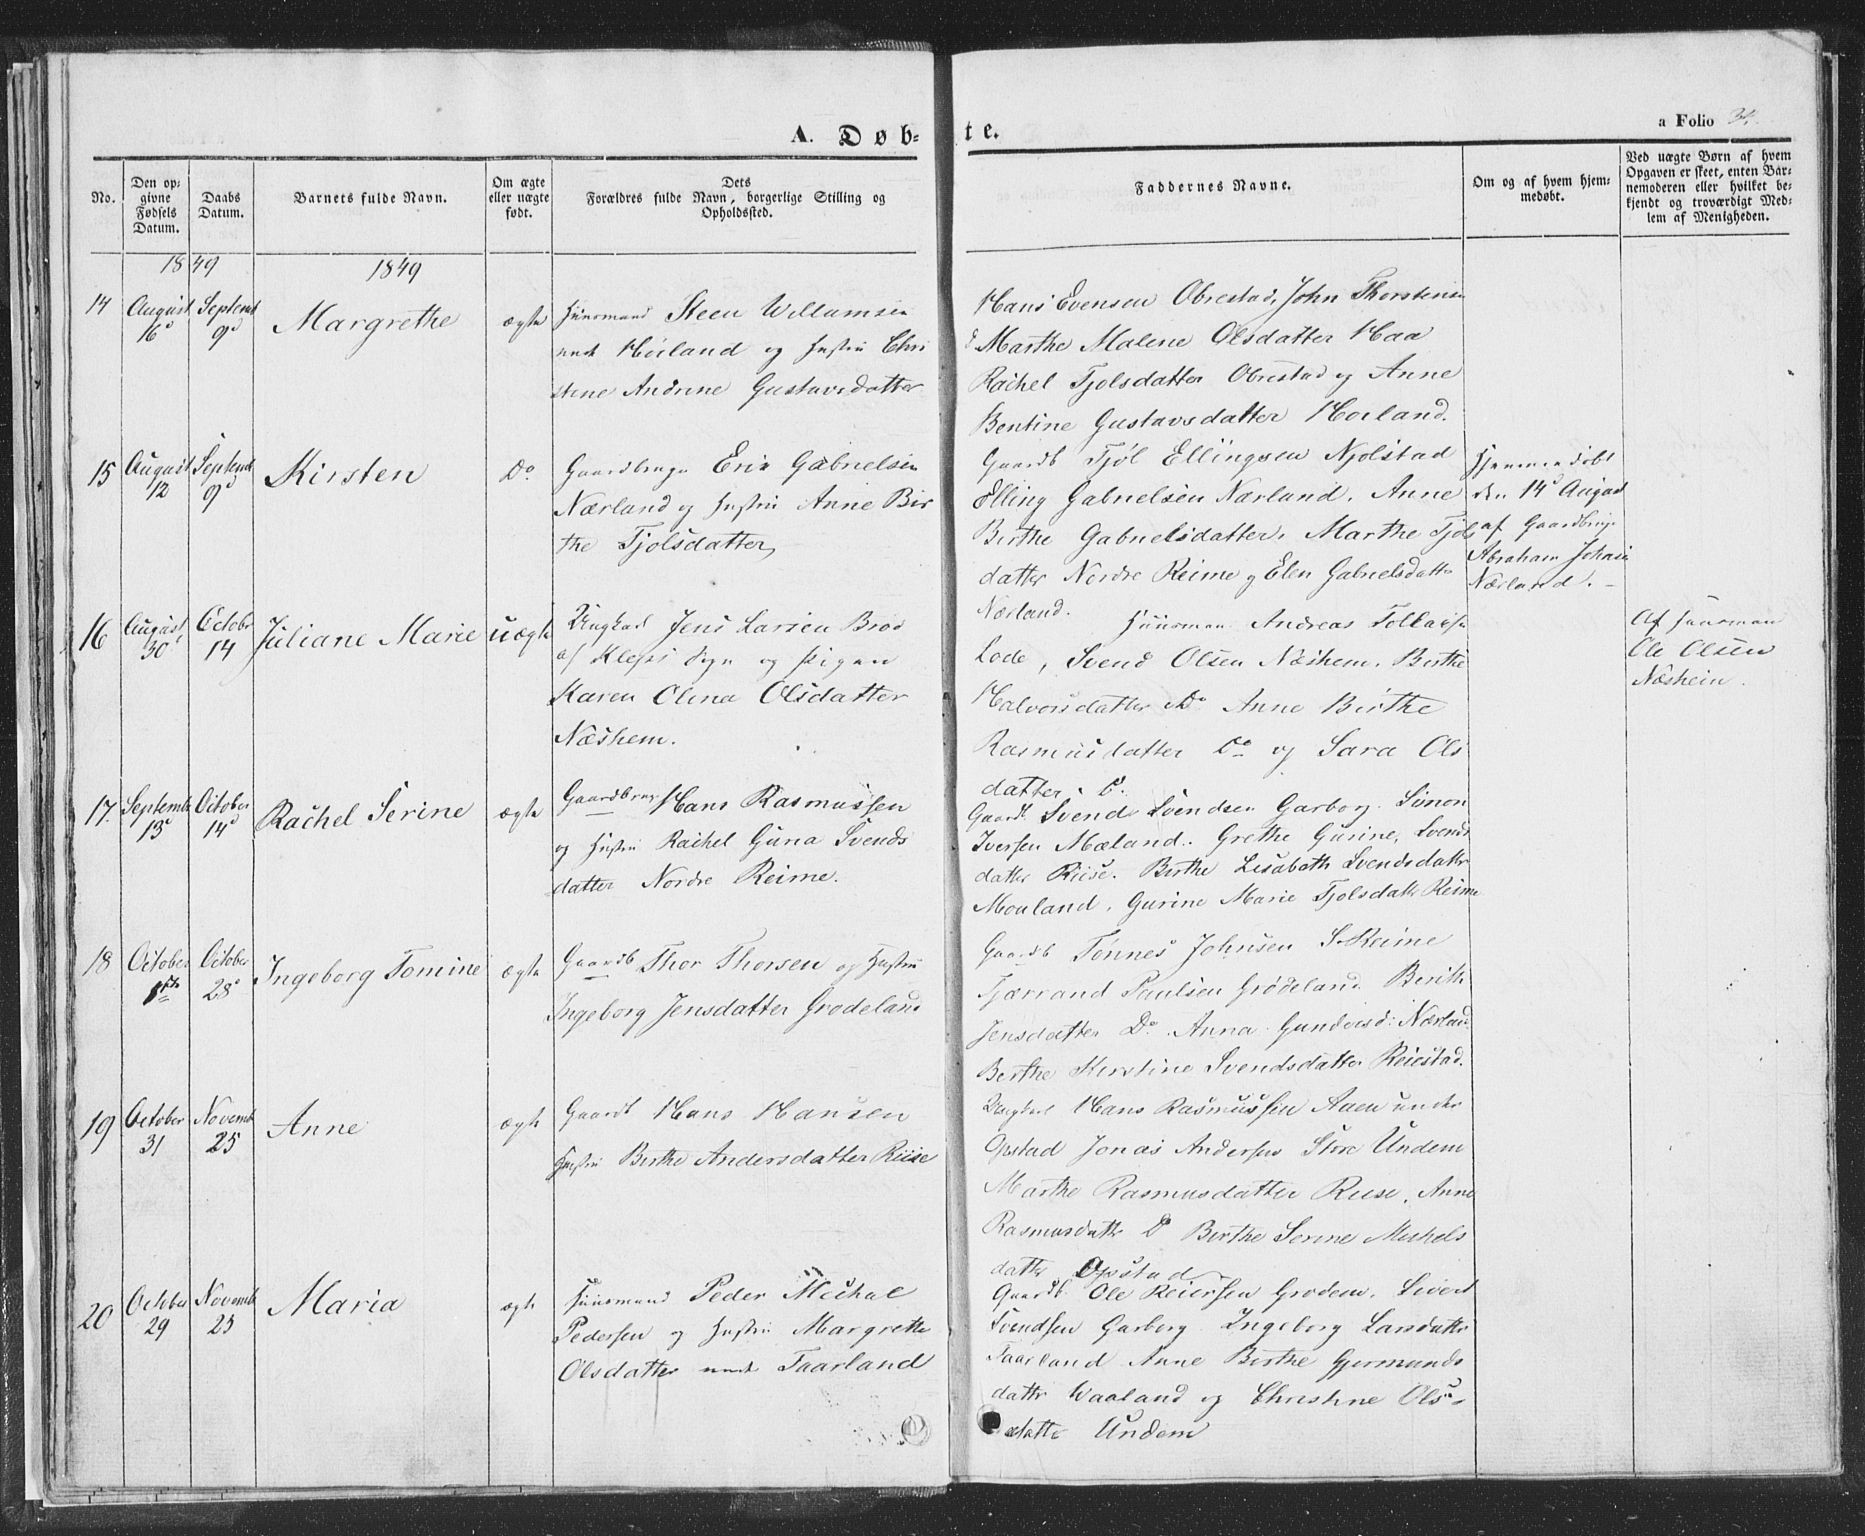 A. Døb-
te.
a Folio 34.
No.
Den op-
givne
Fødsels
Datum.
Daabs
Datum.
Barnets fulde Navn.
Om ægte
eller uægte
født.
Dets
Forældres fulde Navn, borgerlige Stilling og
Opholdssted.
Faddernes Navne.
Om og af hvem hjem-
medøbt.
Ved uægte Børn af hvem
Opgaven er skeet, enten Bar-
nemoderen eller hvilket be-
kjendt og troværdigt Med-
lem af Menigheden.
1849
1849
14
August
16d
Septemb
9d
Margrethe
ægte
Huusmand Steen Willumsen
und Hoiland og Hustru Chri
stene Andrine Gustavsdatter
Hans Evensen Obrestad, John Thorstens
Marthe Malene Olsdatter Haa
Rachel Tjolsdatter Obrestad og Anne
Bentine Gustavsdatter Hoiland.
15
August
12
Septemb
9d
Kirsten
Do
Gaardbruger Eric Gabrielsen
Nærland og Hustru Anne Bir
the Tjolsdatter
Gaardb Tjöl Ellingsen Njolstad
Elling Gabrielsen Nærland. Anne
Birthe Gabrielsdatter. Marthe Tjols
datter Nordre Reime og Elen Gabrielsdatter
Nærland.
Hjemmedöbt
den 14d August
af Gaardbruger
Abraham Johnsen
Nærland.
16
August
30
Octobr
14
Juliane Marie
uægte
Ungkarl Jens Larsen Broe
af Kleps Sogn og Pigen
Karen Olena Olsdatter
Næshem.
Huusmand Andreas Tollaisen
Lode, Svend Olsen Næshem. Birthe
Halvorsdatter Do Anne Birthe
Rasmusdatter Do og Sara Ols
datter Do.
Af Huusmand
Ole Olsen
Næsheim.
17.
Septemb
13d
October
14d
Rachel Serine
ægte
Gaardbrug Hans Rasmussen
og Hustru Rachel Guna Svends
datter Nordre Reime.
Gaardb Svend Svendsen Garborg. Simon
Iversen Mæland. Grethe Gurine, Svends
datter Riise. Birthe Lisabeth Svendsdattr
Mouland. Gurine Marie Tjolsdattr Reime
18
October
1ste
October
28d
Ingeborg Tomine
ægte
Gaardb Thor Thorsen og Hustru
Ingeborg Jensdatter Grodeland
Gaardb Tönnes Johnsen S. Reime
Tjærrand Paulsen Grödeland. Berith
Jensdatter Do. Anna Gundersd: Nærland
Berthe Kirstine Svendsdatter Reiestad.
19
October
31
Novemb
25
Anne
ægte
Gaardb Hans Hansen
Hustru Birthe Andersdatter Riise
Ungkarl Hans Rasmussen Aaen under
Opstad Jonas Andersen Store Undem
Marthe Rasmusdatter Riise. Anne
Rasmusdattr Do Birthe Serine Michels
datter Opstad
20
October
29
Novemb
25
Maria
ægte
Huusmand Peder Michal
Pedersen og Hustru Margrethe
Olsdatter und Taarland
Gaardb. Ole Reiersen Grodem. Sivert
Svendsen Garborg Ingeborg Larsdattr
Taarland Anne Birthe Gjermunds
dattr Waaland og Christine Ols-
datter Undem